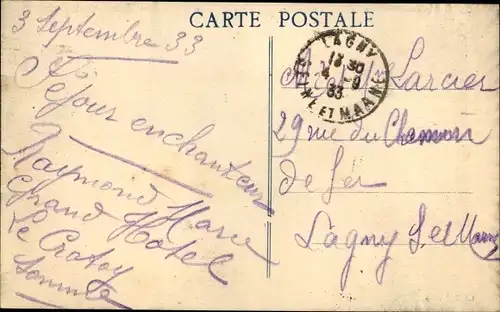 CARTE POSTALE
3 Septembre 33
Séjour enchanteur
Raymond
Grand Hôtel
Le Crotoy
Somme
LAGNY
13 30
4 -9
33
SEINE ET MARNE
Larcier
29 rue du Chemin
de fer
Lagny S et Marne